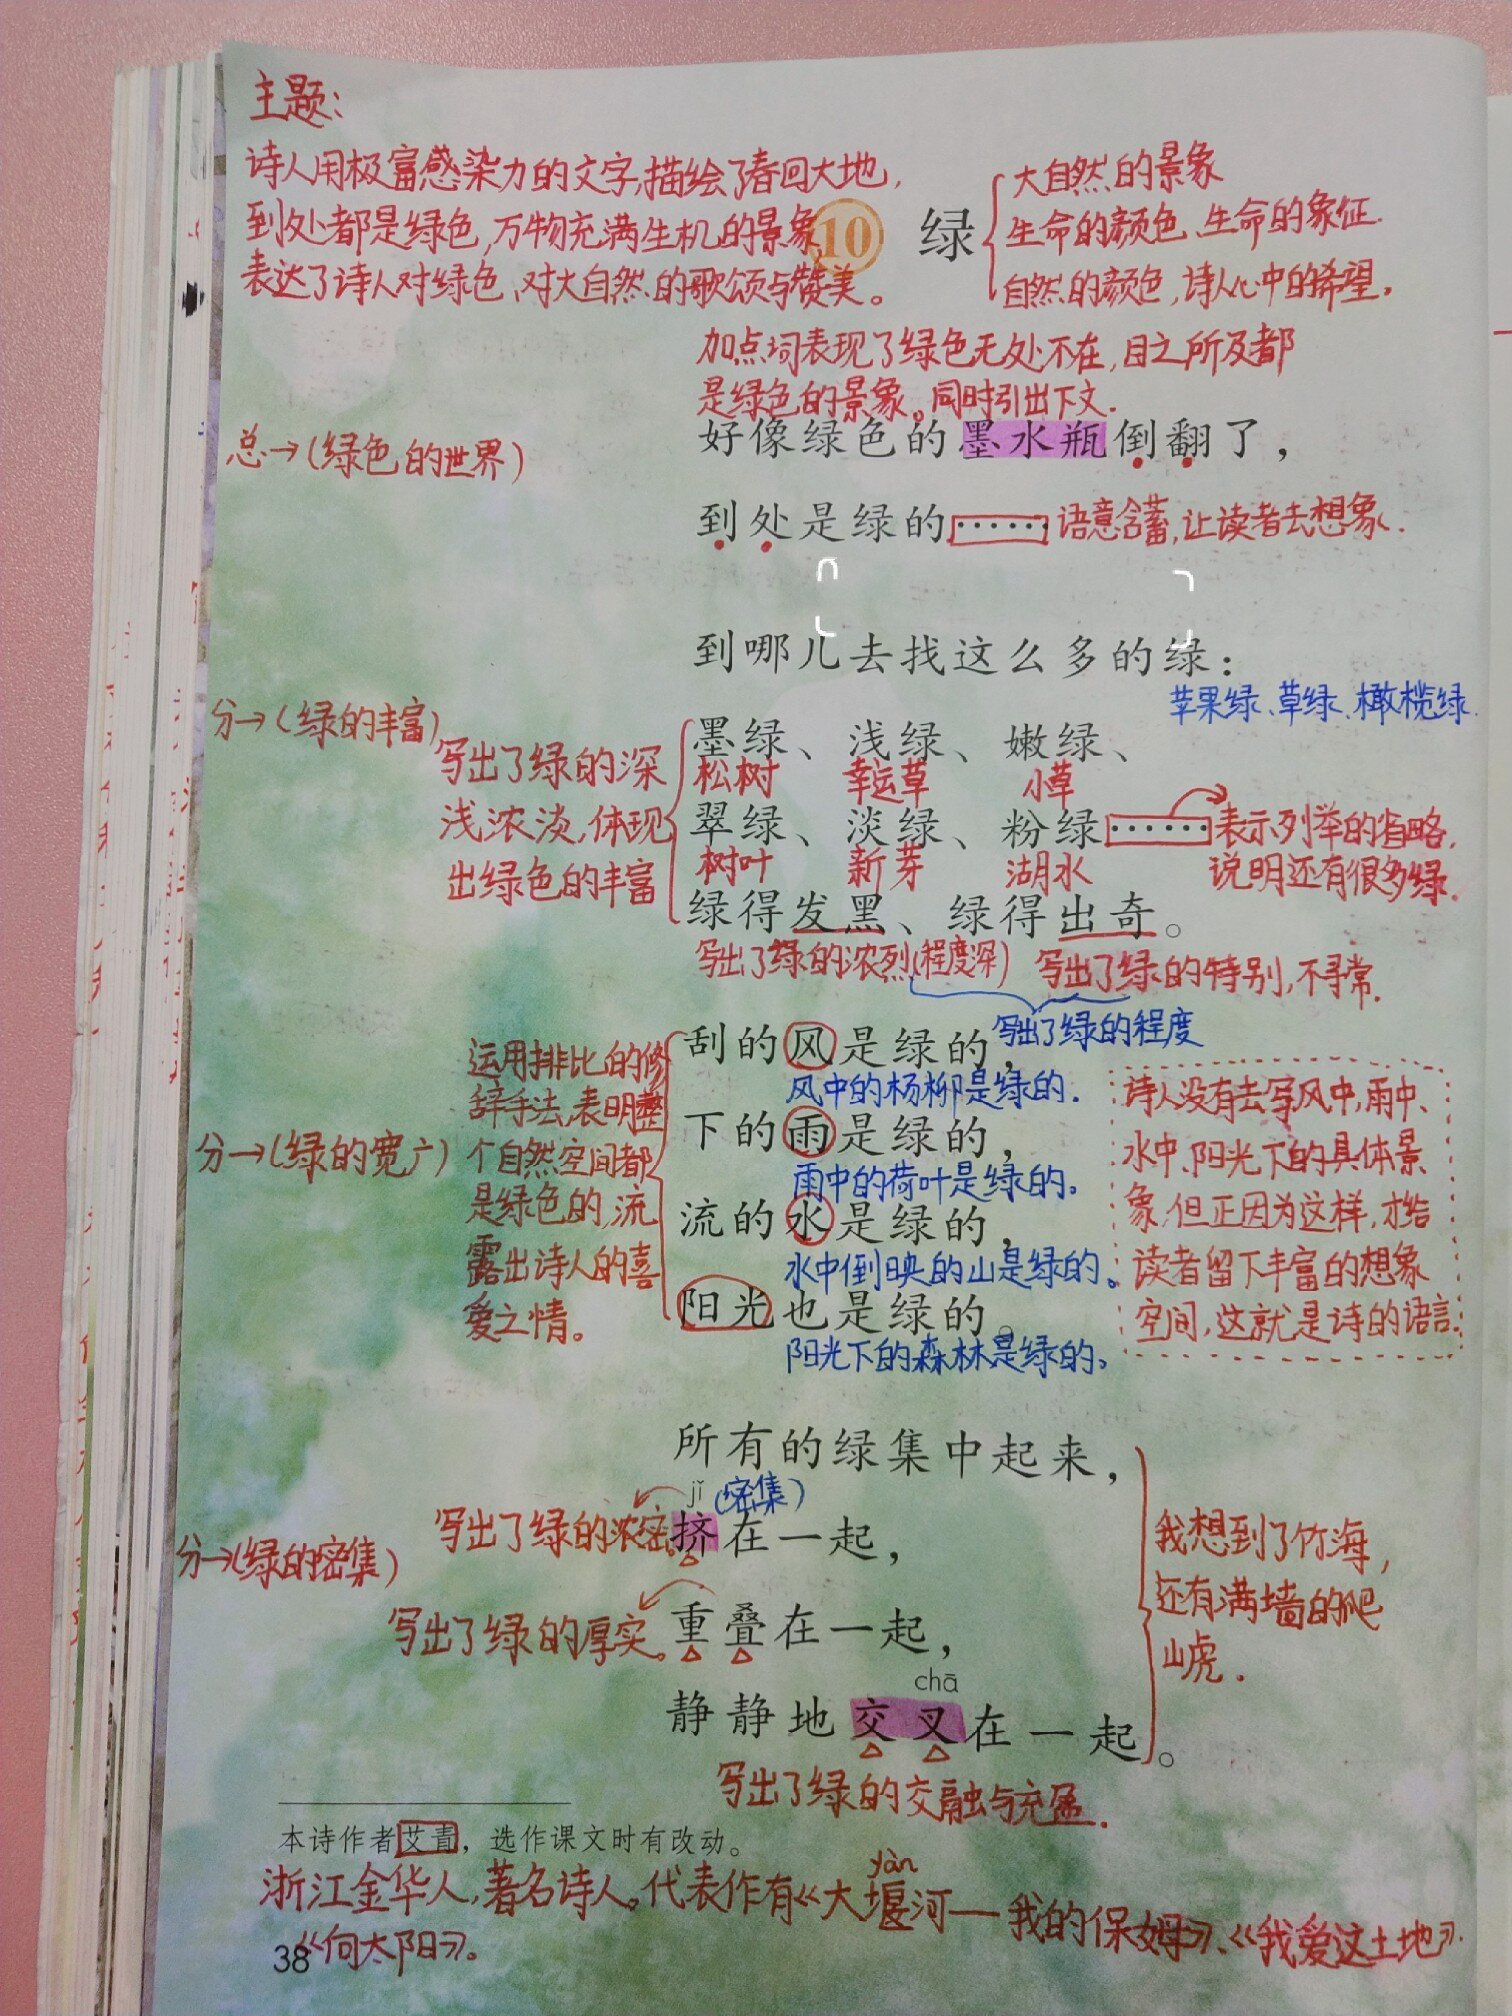 主题:
诗人用极富感染力的文字,描绘了春回大地,
到处都是绿色,万物充满生机的景象,
表达了诗人对绿色、对大自然的歌颂与赞美。
10 绿
大自然的景象
生命的颜色、生命的象征.
自然的颜色,诗人心中的希望.
加点词表现了绿色无处不在,目之所及都
是绿色的景象。同时引出下文.
总→(绿色的世界)
好像绿色的墨水瓶倒翻了，
到处是绿的……
语意含蓄,让读者去想象.
到哪儿去找这么多的绿：
苹果绿、草绿、橄榄绿.
分→(绿的丰富)
写出了绿的深
浅浓淡,体现
出绿色的丰富
墨绿、浅绿、嫩绿、
松树 幸运草 小草
翠绿、淡绿、粉绿……
表示列举的省略,
说明还有很多绿.
树叶 新芽 湖水
绿得发黑、绿得出奇。
写出了绿的浓烈(程度深) 写出了绿的特别,不寻常.
写出了绿的程度
分→(绿的宽广)
运用排比的修
辞手法,表明整
个自然空间都
是绿色的,流
露出诗人的喜
爱之情。
刮的风是绿的，
风中的杨柳是绿的.
下的雨是绿的，
雨中的荷叶是绿的。
流的水是绿的，
水中倒映的山是绿的。
阳光也是绿的。
阳光下的森林是绿的。
诗人没有去写风中,雨中、
水中、阳光下的具体景
象,但正因为这样,才给
读者留下丰富的想象
空间,这就是诗的语言.
所有的绿集中起来，
jǐ (密集)
分→(绿的密集)
写出了绿的浓密。
挤在一起，
写出了绿的厚实。
重叠在一起，
chā
静静地交叉在一起。
写出了绿的交融与充盈.
我想到了竹海,
还有满墙的爬
山虎.
本诗作者艾青，选作课文时有改动。
yàn
浙江金华人,著名诗人。代表作有《大堰河—我的保姆》、《我爱这土地》.
《向太阳》。
38